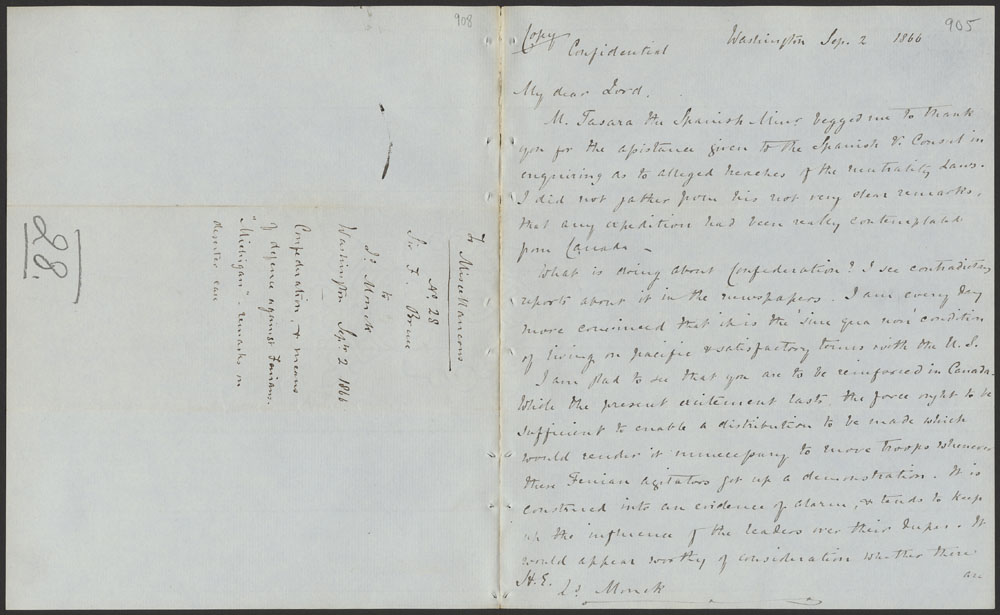 908
28.
To Miscellaneous
No. 28
Sir F. Bruce
to
Ld. Monck
Washington Septr 2 1866
Confederation, & means
of defence against Fenians.
"Michigan" remarks on
905
Copy
Confidential
Washington Sep. 2 1866
My dear Lord.
M. Tasara the Spanish Minr begged me to thank
you for the assistance given to the Spanish V. Consul in
enquiring as to alleged breaches of the neutrality Laws.
I did not gather from his not very clear remarks,
that any expedition had been really contemplated
from Canada –
What is doing about Confederation? I see contradictory
reports about it in the newspapers. I am every day
more convinced that it is the 'sine qua non' condition
of living on pacific & satisfactory terms with the U.S.
I am glad to see that you are to be reinforced in Canada.
While the present excitement lasts the force ought to be
sufficient to enable a distribution to be made which
would render it unnecessary to move troops whenever
these Fenian agitators got up a demonstration. It is
construed into an evidence of alarm, & tends to keep
up the influence of the leaders over their dupes. It
would appear worthy of consideration whether there
are
H.E.
Ld Monck